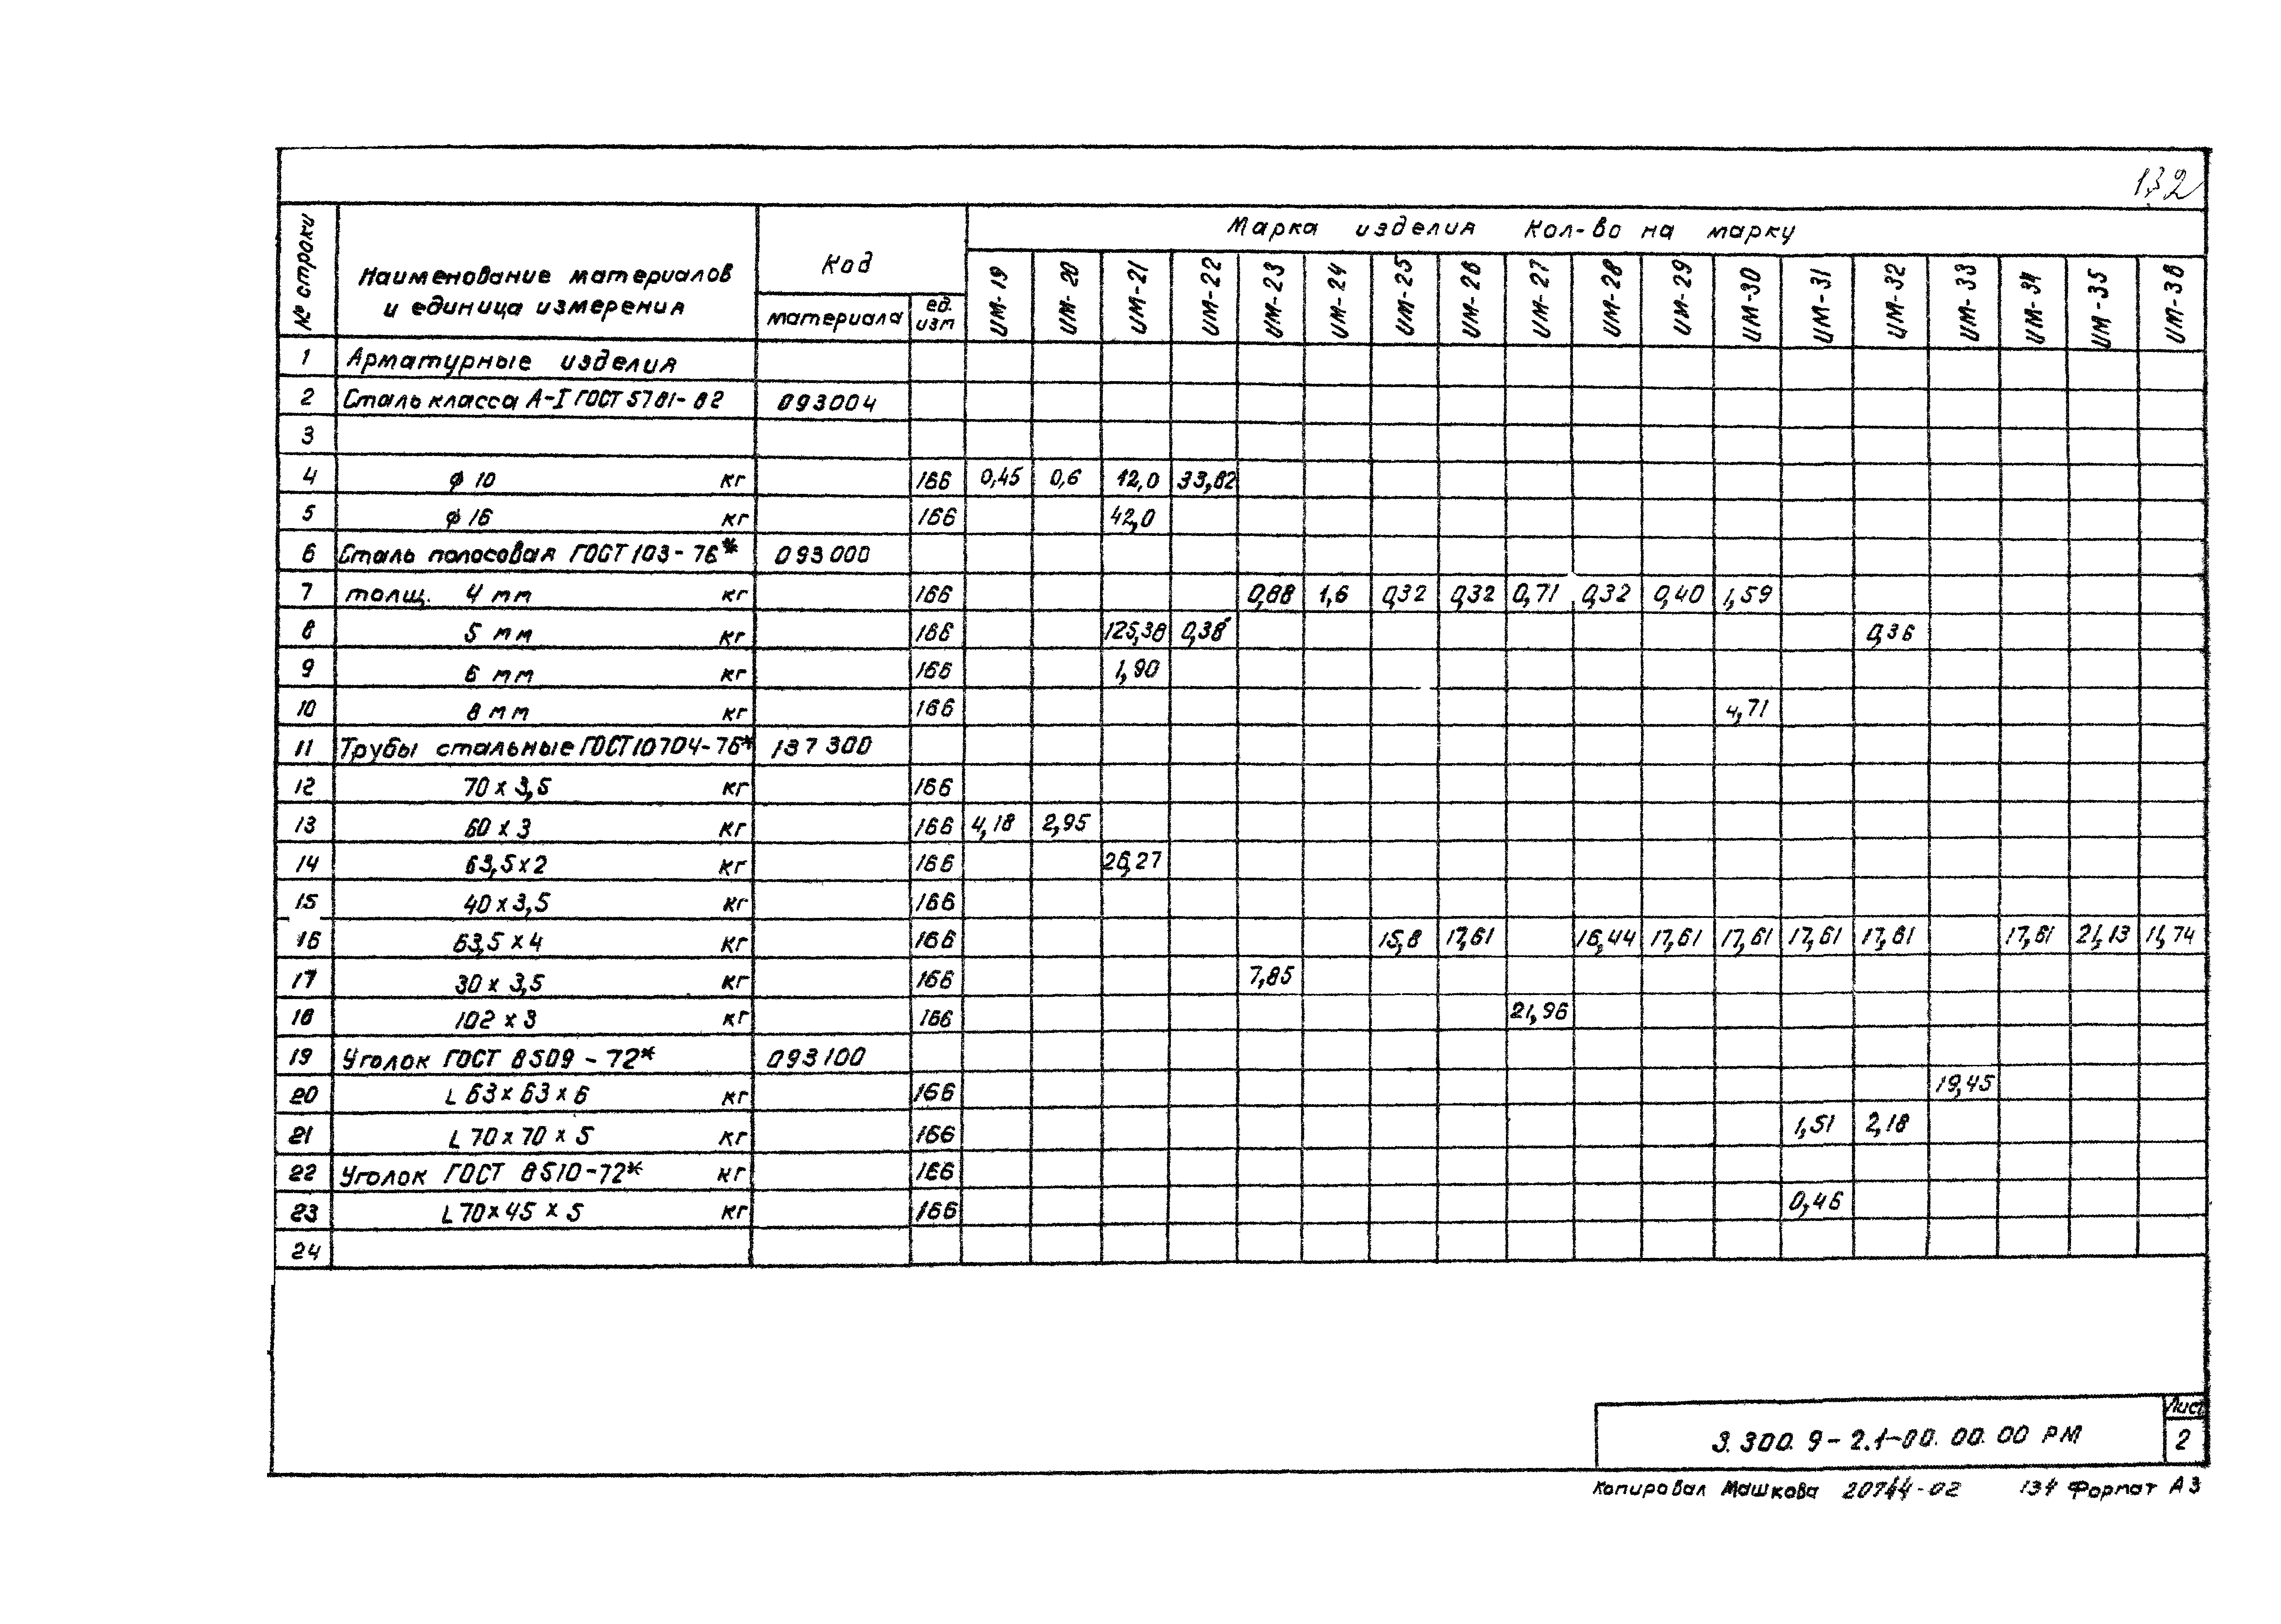 132
№ строки
Наименование материалов
и единица измерения
Код
материала
ед.
изм
Марка изделия Кол-во на марку
ИМ-19 ИМ-20 ИМ-21 ИМ-22 ИМ-23 ИМ-24 ИМ-25 ИМ-26 ИМ-27 ИМ-28 ИМ-29 ИМ-30 ИМ-31 ИМ-32 ИМ-33 ИМ-34 ИМ-35 ИМ-36
1 Арматурные изделия
2 Сталь класса А-I ГОСТ 5781-82 093004
3
4 ϕ 10 кг 166 0,45 0,6 12,0 33,82
5 ϕ 16 кг 166 42,0
6 Сталь полосовая ГОСТ 103-76* 093000
7 толщ. 4 мм кг 166 0,88 1,6 0,32 0,32 0,71 0,32 0,40 1,59
8 5 мм кг 166 125,38 0,38 0,36
9 6 мм кг 166 1,90
10 8 мм кг 166 4,71
11 Трубы стальные ГОСТ 10704-76* 137300
12 70 х 3,5 кг 166
13 60 х 3 кг 166 4,18 2,95
14 63,5 х 2 кг 166 26,27
15 40 х 3,5 кг 166
16 63,5 х 4 кг 166 15,8 17,61 16,44 17,61 17,61 17,61 17,61 17,61 21,13 11,74
17 30 х 3,5 кг 166 7,85
18 102 х 3 кг 166 21,96
19 Уголок ГОСТ 8509-72* 093100
20 L 63 х 63 х 6 кг 166 19,45
21 L 70 х 70 х 5 кг 166 1,51 2,18
22 Уголок ГОСТ 8510-72* кг 166
23 L 70 х 45 х 5 кг 166 0,46
24
3.300.9-2.1-00.00.00 РМ
Лист
2
Копировал Машкова 20744-02 134 Формат А3